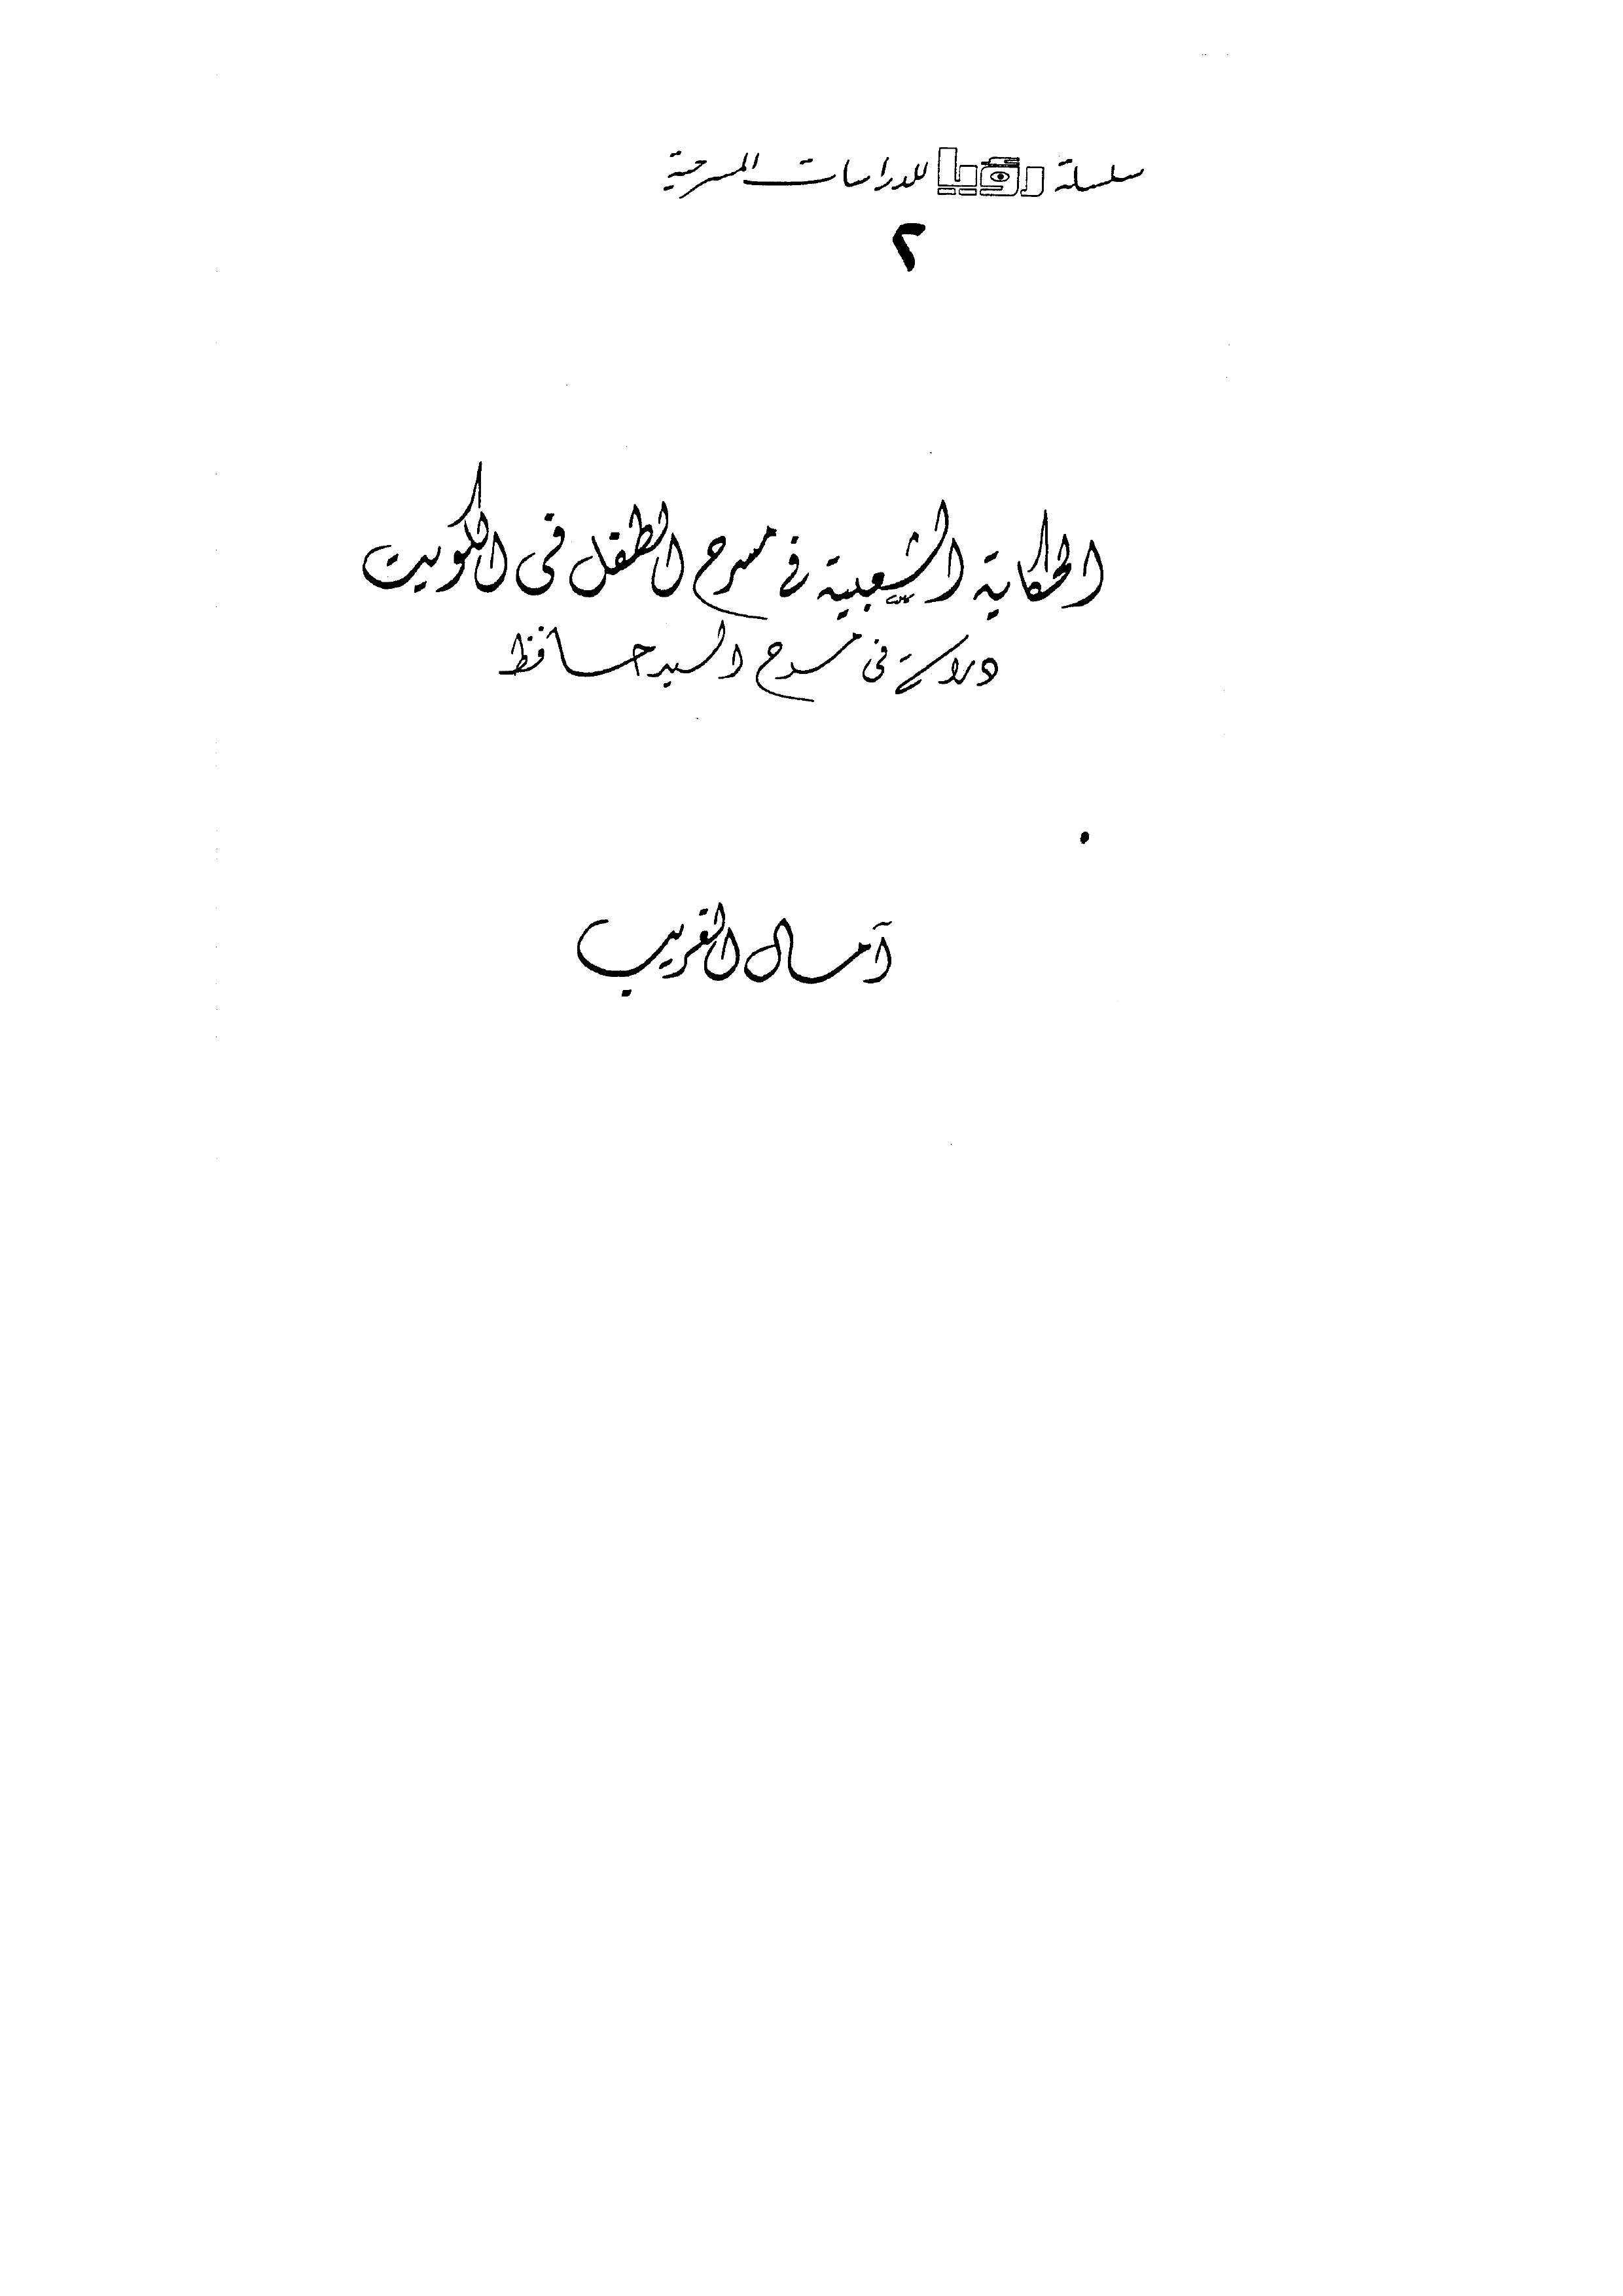 سلسلة رؤيا للدراسات المسرحية
٢
الحكاية الشعبية في مسرح الطفل في الكويت
دراسة في مسرح السيد حافظ
آمال الغريب